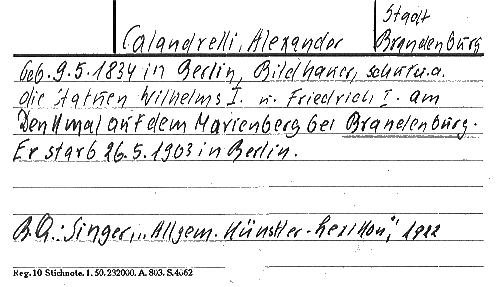 Stadt
Calandrelli, Alexander Brandenburg
Geb. 9.5.1834 in Berlin, Bildhauer, schuf u.a.
die Statuen Wilhelms I. u. Friedrich I. am
Denkmal auf dem Marienberg bei Brandenburg.
Er starb 26.5.1903 in Berlin.
B.A.: Singer, "Allgem. Künstler-Lexikon", 1922
Reg. 10 Stichnote. I. 50. 232000. A. 803. S. 4062